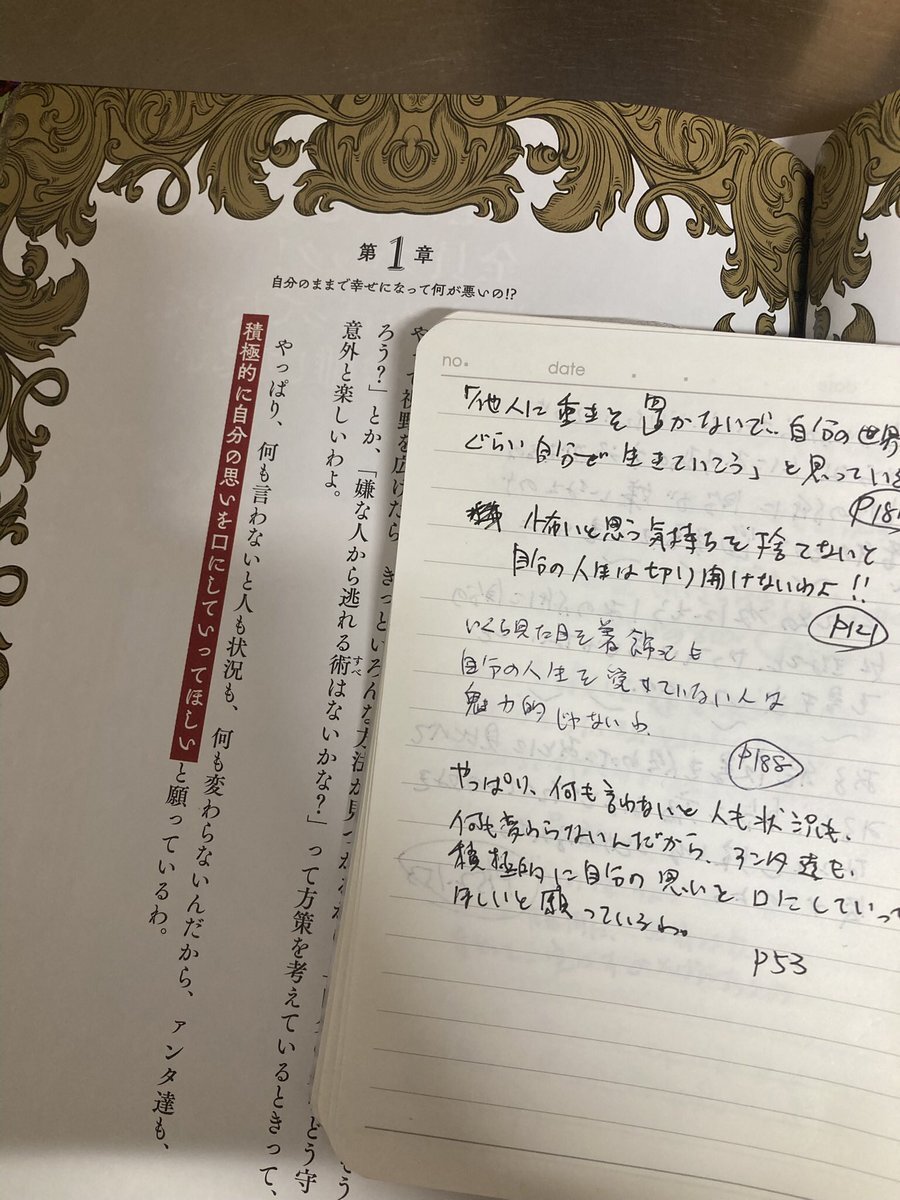 第1章
自分のままで幸せになって何が悪いの!?
やって視野を広げたら、きっといろんな方法が見つ
どう守
ろう?」とか、「嫌な人から逃れる術はないかな?」って方策を考えているときって、
すべ
意外と楽しいわよ。
やっぱり、何も言わないと人も状況も、何も変わらないんだから、アンタ達も、
積極的に自分の思いを口にしていってほしいと願っているわ。
no. date . .
「他人に重きを置かないで‥自分の世界
ぐらい自分で生きていこう」と思っている
怖いと思う気持ちを捨てないと
自分の人生は切り開けないわよ!!
P121
いくら見た目を着飾っても
自分の人生を愛せていない人は
魅力的じゃないわ
P188
やっぱり、何も言わないと人も状況も、
何も変わらないんだから、アンタ達も、
積極的に自分の思いを口にしていって
ほしいと願っているわ。
P53